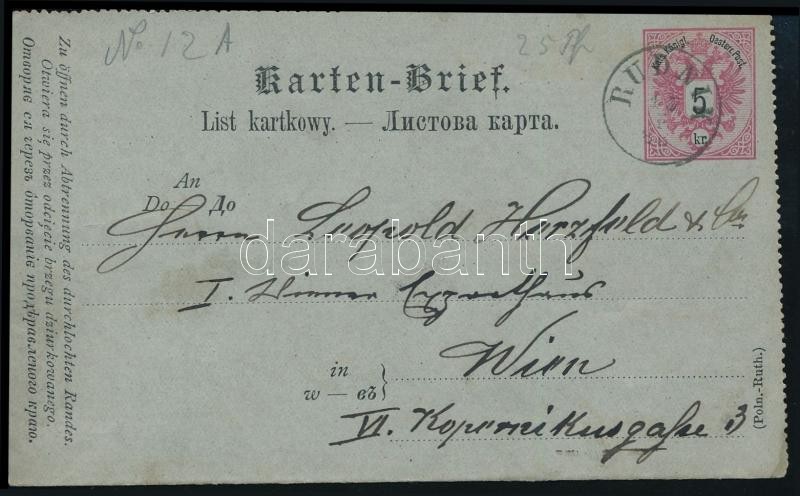 No 12 A
25 Pf
Karten-Brief.
List kartkowy. — Листова карта.
Kais. Königl. Oesterr. Post.
5
kr.
RUDN
An
Do До
Herrn Leopold Herzfeld & Co
I. Wiener Exporthaus
Wien
in
w — въ
VI. Kopernikusgasse 3
(Poln.-Ruth.)
Zu öffnen durch Abtrennung des durchlochten Randes.
Otwiera się przez odcięcie brzegu dziurkowanego.
Отворяє ся черезъ оторванїє продѣравленого краю.
darabanth